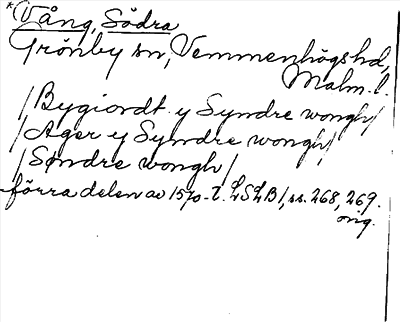 *Vång, Södra
Grönby sn, Vemmenhögs hd,
Malm. l.
/Bygiordt y Syndre wongh/
/Ager y Syndre wongh/
/Søndre wongh/
förra delen av 1570-t. LSLB1, ss. 268, 269.
orig.